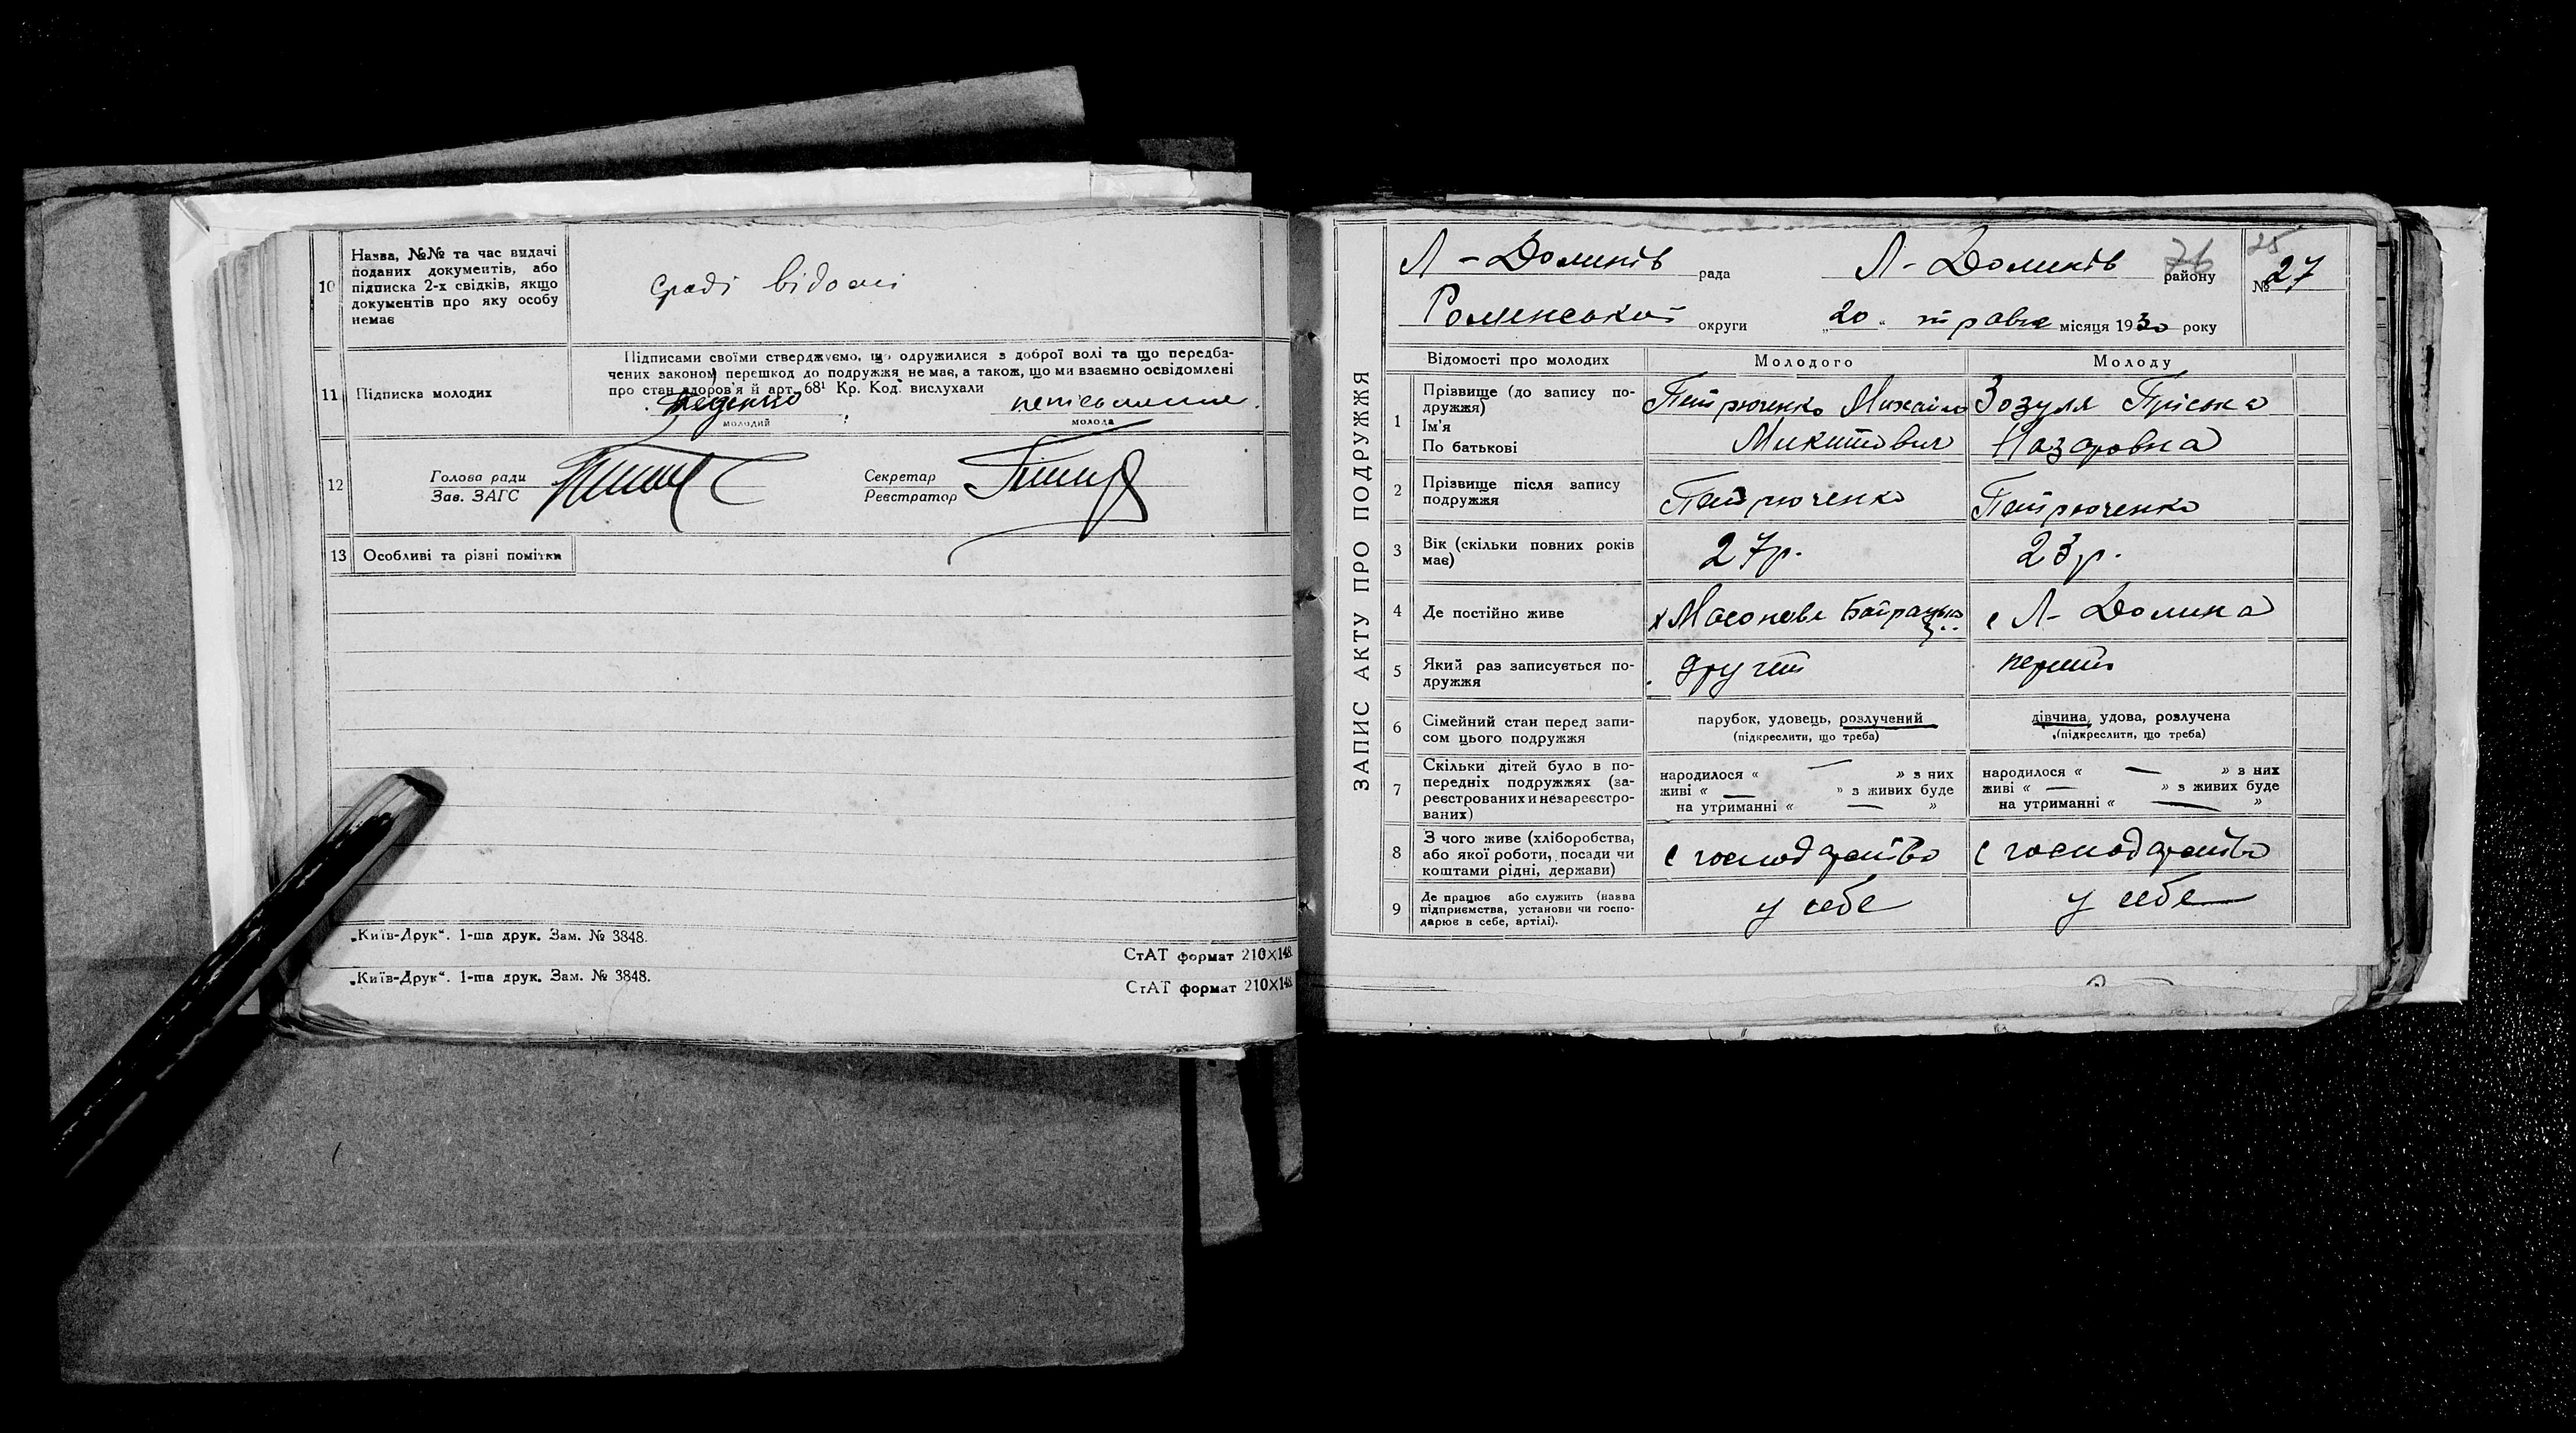 10
Назва, №№ та час видачі
поданих документів, або
підписка 2-х свідків, якщо
документів про яку особу
немає
раді відомі
11
Підписка молодих
Підписами своїми стверджуємо, що одружилися з доброї волі та що передба-
чених законом перешкод до подружжя не має, а також, що ми взаємно освідомлені
про стан здоров'я й арт. 68¹ Кр. Код. вислухали
молодий
;
неписьменна.
молода
12
Голова ради
Зав. ЗАГС
Секретар
Реєстратор
13
Особливі та різні помітки
„Київ-Друк“. 1-ша друк. Зам. № 3848.
СтАТ формат 210×148
„Київ-Друк“. 1-ша друк. Зам. № 3848.
СтАТ формат 210×148
ЗАПИС АКТУ ПРО ПОДРУЖЖЯ
Л-Долинів рада Л-Долинів району
76 25
№ 27
Роменської округи „20“ травня місяця 1930 року
Відомості про молодих
Молодого
Молоду
1
Прізвище (до запису по-
дружжя)
Ім'я
По батькові
Петрюченко Михайло
Микитович
Зозуля Пріська
Назаровна
2
Прізвище після запису
подружжя
Петрюченко
Петрюченко
3
Вік (скільки повних років
має)
27р.
23р.
4
Де постійно живе
х Масонове
с Л-Долина
5
Який раз записується по-
дружжя
другий
перший
6
Сімейний стан перед запи-
сом цього подружжя
парубок, удовець, розлучений
(підкреслити, що треба)
дівчина, удова, розлучена
(підкреслити, що треба)
7
Скільки дітей було в по-
передніх подружжях (за-
реєстрованих и незареєстро-
ваних)
народилося « — » з них
живі « — » з живих буде
на утриманні « — »
народилося « — » з них
живі « — » з живих буде
на утриманні « — »
8
З чого живе (хліборобства,
або якої роботи, посади чи
коштами рідні, держави)
с господарство
с господарство
9
Де працює або служить (назва
підприємства, установи чи госпо-
дарює в себе, артілі).
у себе
у себе